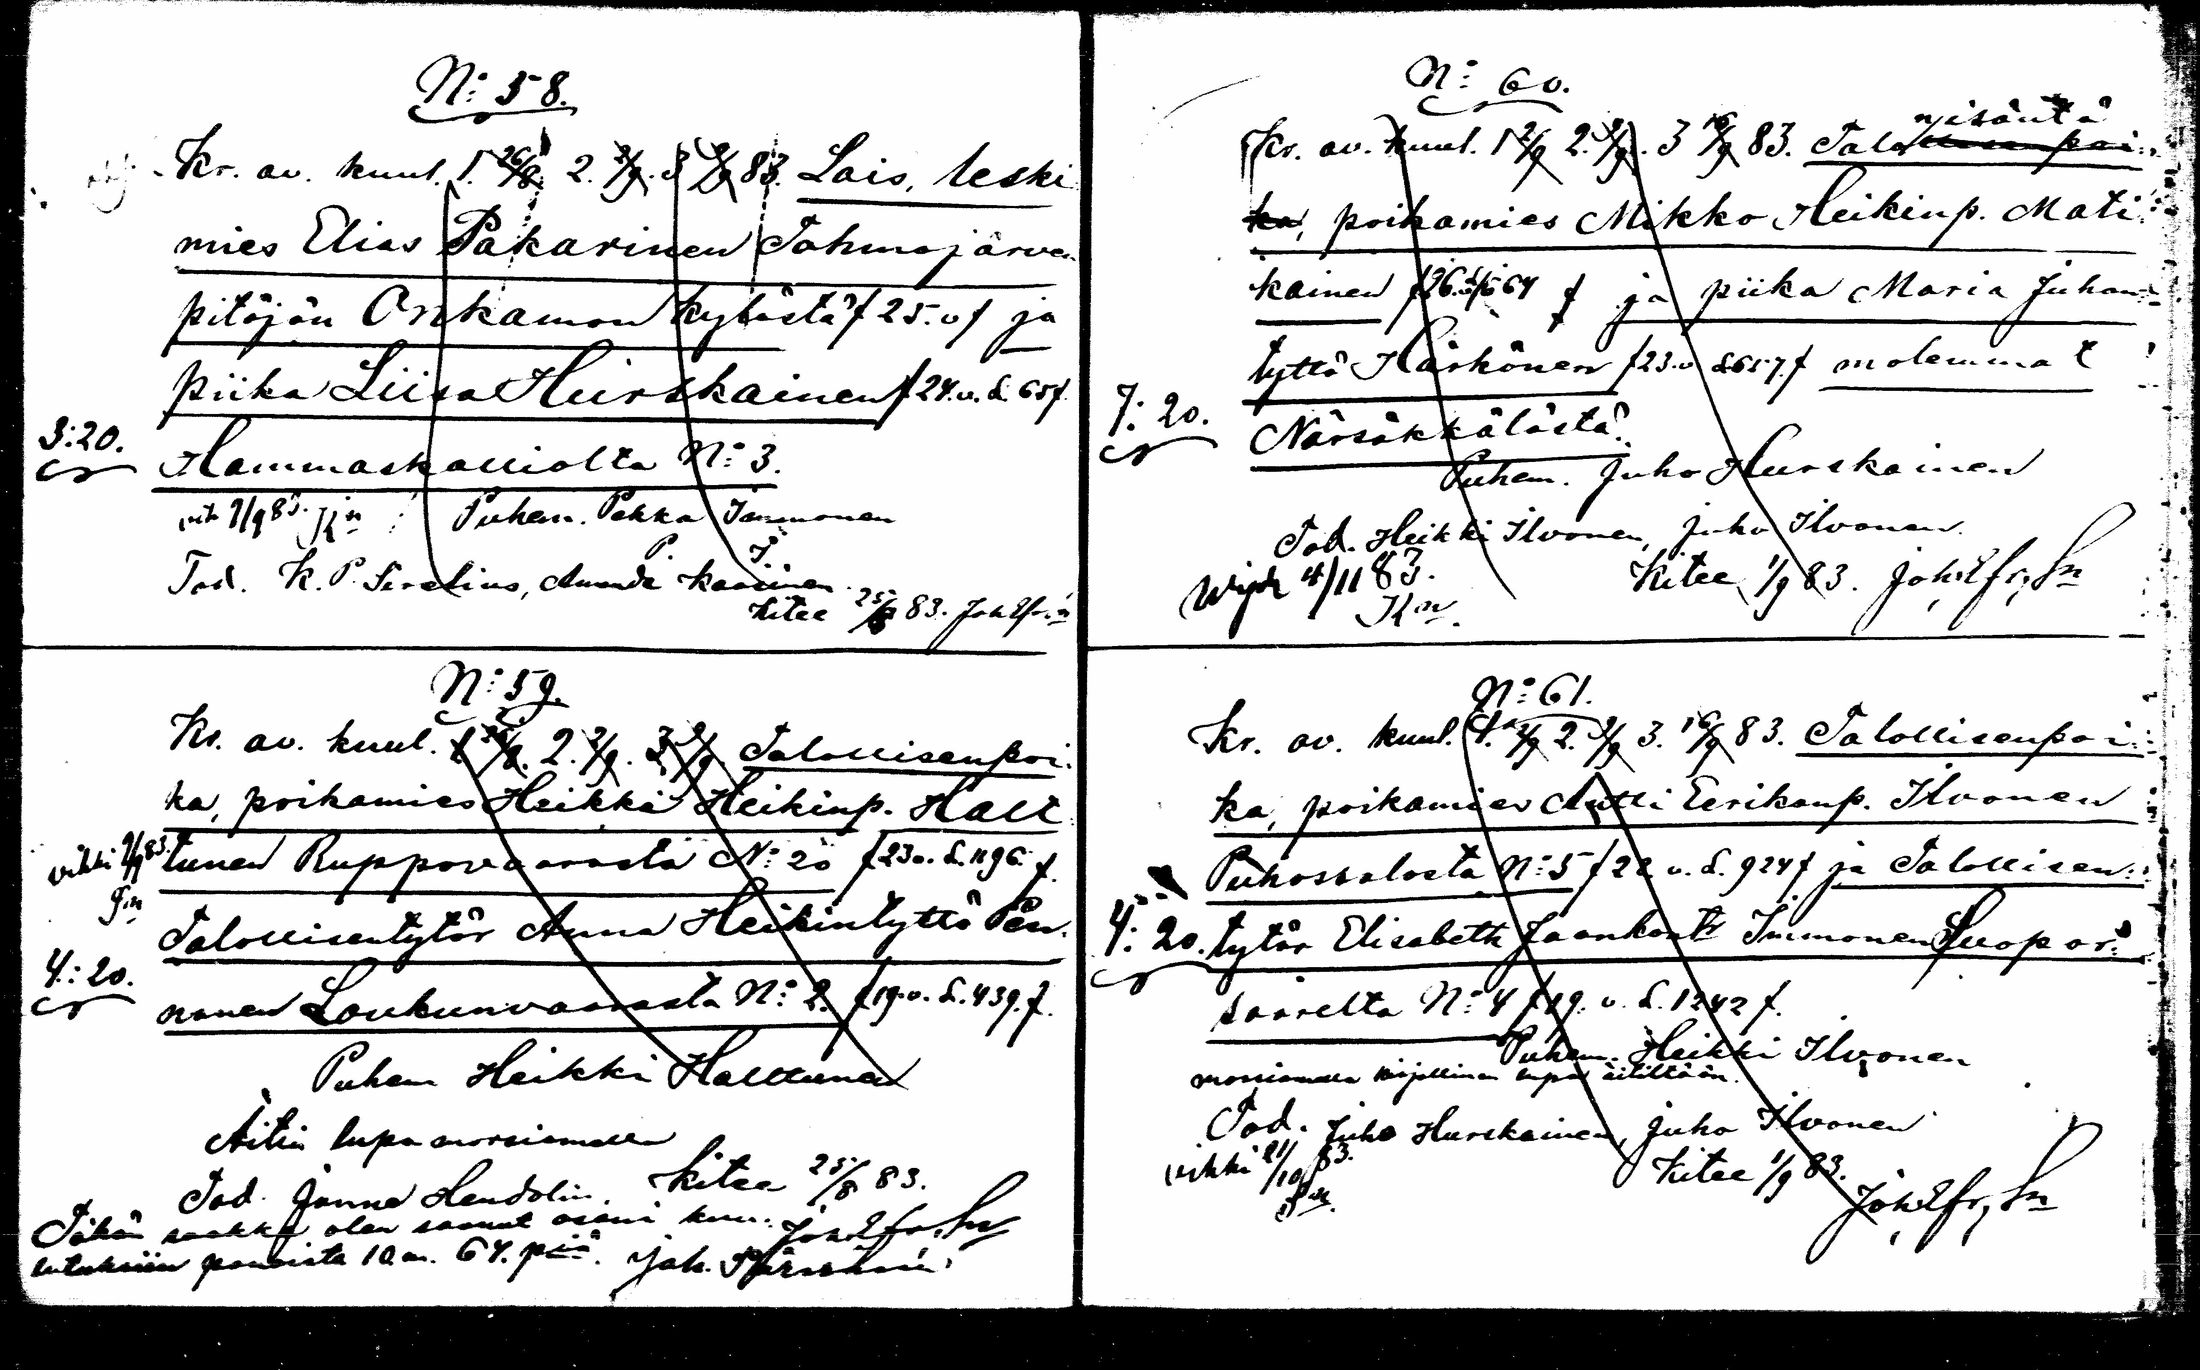 N: 58.
Kr. av. kuul. 1. 26/8 2. 2/9. 3 9/9 83. Lois, leski
mies Elias Pakarinen Tohmajärven
pitäjän Onkamon kylästä f 25. v f ja
piika Liisa Hurskainen f 24. v. S. 65 f.
3:20.
Hammaskalliolta N: 3.
vih 9/9 83. Kn
Puhem. Pekka Immonen
Tod. K. P. Serelius, Amanda
Kitee 25/8 83. Joh Efr.
N: 59.
Kr. av. kuul. 1 26/8. 2. 2/9. 3 9/9 Talollisenpoi-
ka, poikamies Heikki Heikinp. Halt
tunen Ruppovaarasta N: 20 f 23 v. S. 1196 f.
vihki 9/9 83.
Talollisentytär Anna Heikintyttö Pen-
4:20.
nanen Loukunvaarasta N: 2. f 19. v. S. 439. f.
Puhem Heikki Halttunen
Äitin lupa morsiamella
Tod. Janne Hendolin. Kitee 25/8 83.
Tähän saakka olen saanut osani kuu-
lutuksiin panoista 10 m. 64. piä. Joh.
N: 60.
nisäntä
Kr. av. kuul. 1 2/9 2. 9/9. 3 16/9 83. Talollisenpoi-
ka, poikamies Mikko Heikinp. Mati-
kainen f 26. S. 664 f ja piika Maria Juhan-
tyttö Härkönen f 23. v S 657. f molemmat
7: 20.
Närsäkkälästä.
Puhem. Juho Hurskainen
Tod. Heikki Ilvonen, Juho Ilvonen.
Wijh 4/11 83.
Kn.
Kitee 1/9 83. Joh. Efr. Sn
N: 61.
Kr. av. kuul. 1. 2/9 2. 9/9 3. 16/9 83. Talollisenpoi-
ka, poikamies Antti Eerikanp. Ilvonen
Puhossalosta N: 5 f 22 v. S. 924 f ja Talollisen-
4: 20.
tytär Elisabeth Jaankontr Immonen Suopar-
saarelta N: 4 f 19. v. S. 1242 f.
Puhem. Heikki Ilvonen
morsiamella kirjallinen lupa äitiltään.
Tod. Juho Hurskainen, Juho Ilvonen
vihki 21/10 83.
Kitee 1/9 83.
Joh. Efr. Sn